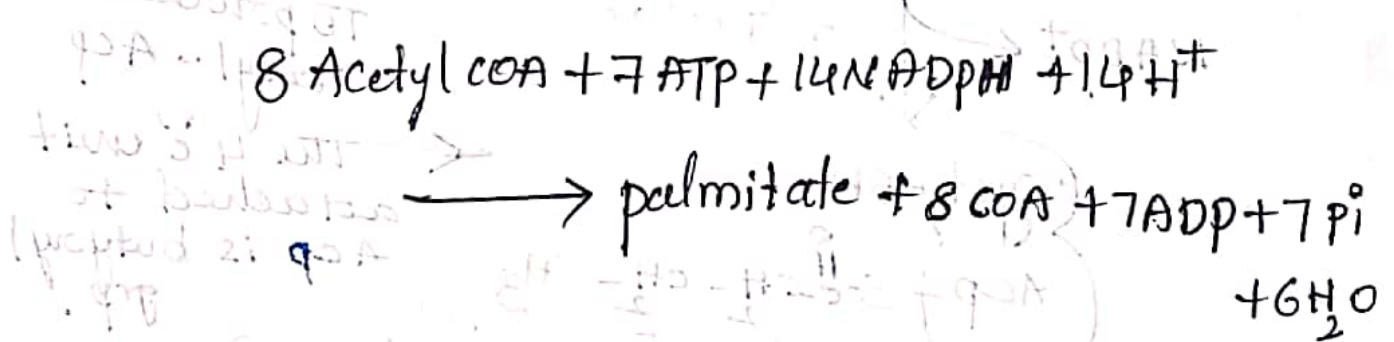 8 Acetyl COA + 7 ATP + 14 NADPH + 14 H⁺
⟶ palmitate + 8 COA + 7 ADP + 7 Pi
+ 6H₂O